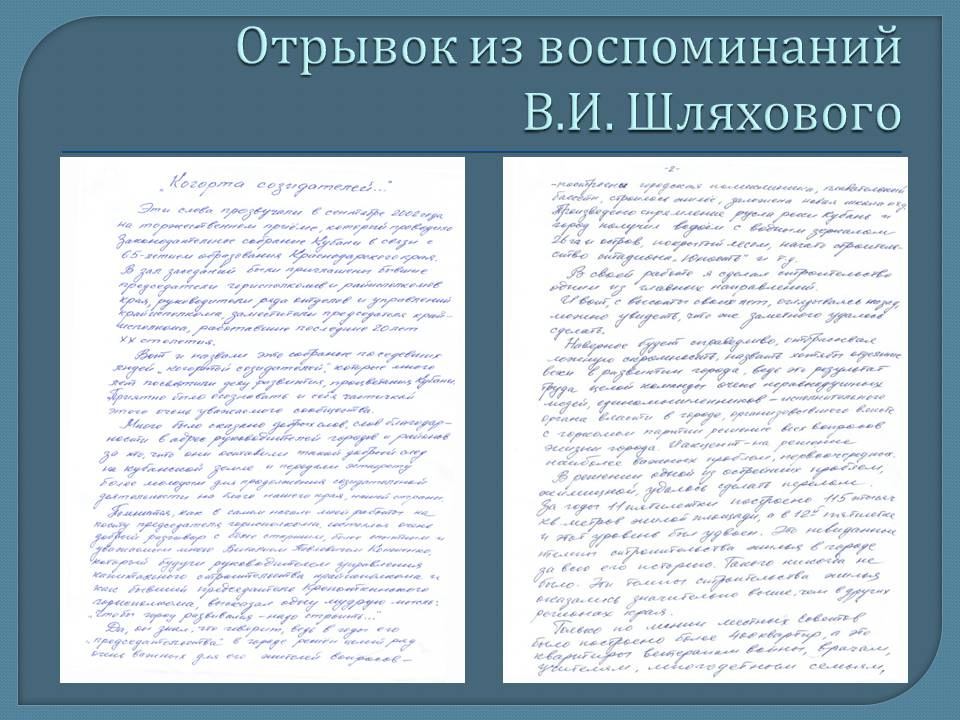 Отрывок из воспоминаний
В.И. Шляхового
„Когорта созидателей..."
Эти слова прозвучали в сентябре 2002 года
на торжественном приёме, который проводило
Законодательное собрание Кубани в связи с
65-летием образования Краснодарского края.
В зал заседаний были приглашены бывшие
председатели горисполкомов и райисполкомов
края, руководители ряда отделов и управлений
крайисполкома, заместители председателя край-
исполкома, работавшие последние 20 лет
XX столетия.
Вот и назвали это собранье поседевших
людей „когортой созидателей", которые много
лет посвятили делу развития, процветания Кубани.
Приятно было осознавать и себя частичкой
этого очень уважаемого сообщества.
Много было сказано добрых слов, слов благодар-
ности в адрес руководителей городов и районов
за то, что они оставили такой добрый след
на кубанской земле и передали эстафету
более молодым для продолжения созидательной
деятельности на благо нашего края, нашей страны.
Помнится, как в самом начале моей работы на
посту председателя горисполкома, состоялся очень
добрый разговор с более старшим, более опытным и
уважаемым мною Виталием Павловичем
который будучи руководителем управления
капитального строительства крайисполкома и
как бывший председатель Кропоткинского
горисполкома, высказал одну мудрую мысль:
„Чтобы город развивался – надо строить..."
Да, он знал, что говорит, ведь в годы его
„председательства" в городе решён целый ряд
очень важных для его жителей вопросов –
-2-
-построены городская поликлиника, плавательный
бассейн, строилось жильё, заложена новая школа
Произведено спрямление русла реки Кубань и
город получил водоём с водным зеркалом
26 га и остров, покрытый лесом, начато строитель-
ство стадиона „Юность" и т.д.
В своей работе я сделал строительство
одним из главных направлений.
И вот, с высоты своих лет, оглядываясь назад,
можно увидеть, что же заметного удалось
сделать.
Наверное будет справедливо, отбрасывая
ложную скромность, назвать хотя бы отдельные
вехи в развитии города, ведь это результат
труда целой команды очень неравнодушных
людей, единомышленников – исполнительного
органа власти в городе, организовавшего вместе
с горкомом партии решение всех вопросов
жизни города. И акцент – на решение
наиболее важных проблем, первоочередных.
В решении одной из острейших проблем,
жилищной, удалось сделать перелом.
За годы 11 пятилетки построено 115 тысяч
кв. метров жилой площади, а в 12ой пятилетке
и этот уровень был удвоен. Это невиданные
темпы строительства жилья в городе
за всю его историю. Такого никогда не
было. Эти темпы строительства жилья
оказались значительно выше, чем в других
регионах края.
Только по линии местных Советов
было построено более 400 квартир, а это
квартиры ветеранам войны, врачам,
учителям, многодетным семьям,